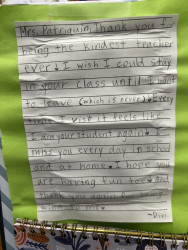 Mrs. Patriquin, Thank you f
being the kindest teacher
ever! I wish I could stay
in your class until I got
to leave (which is never). Every
time I visit it feels like
I am your student again. I
miss you every day in school
and at home. I hope you
are having fun too. And
thank you again